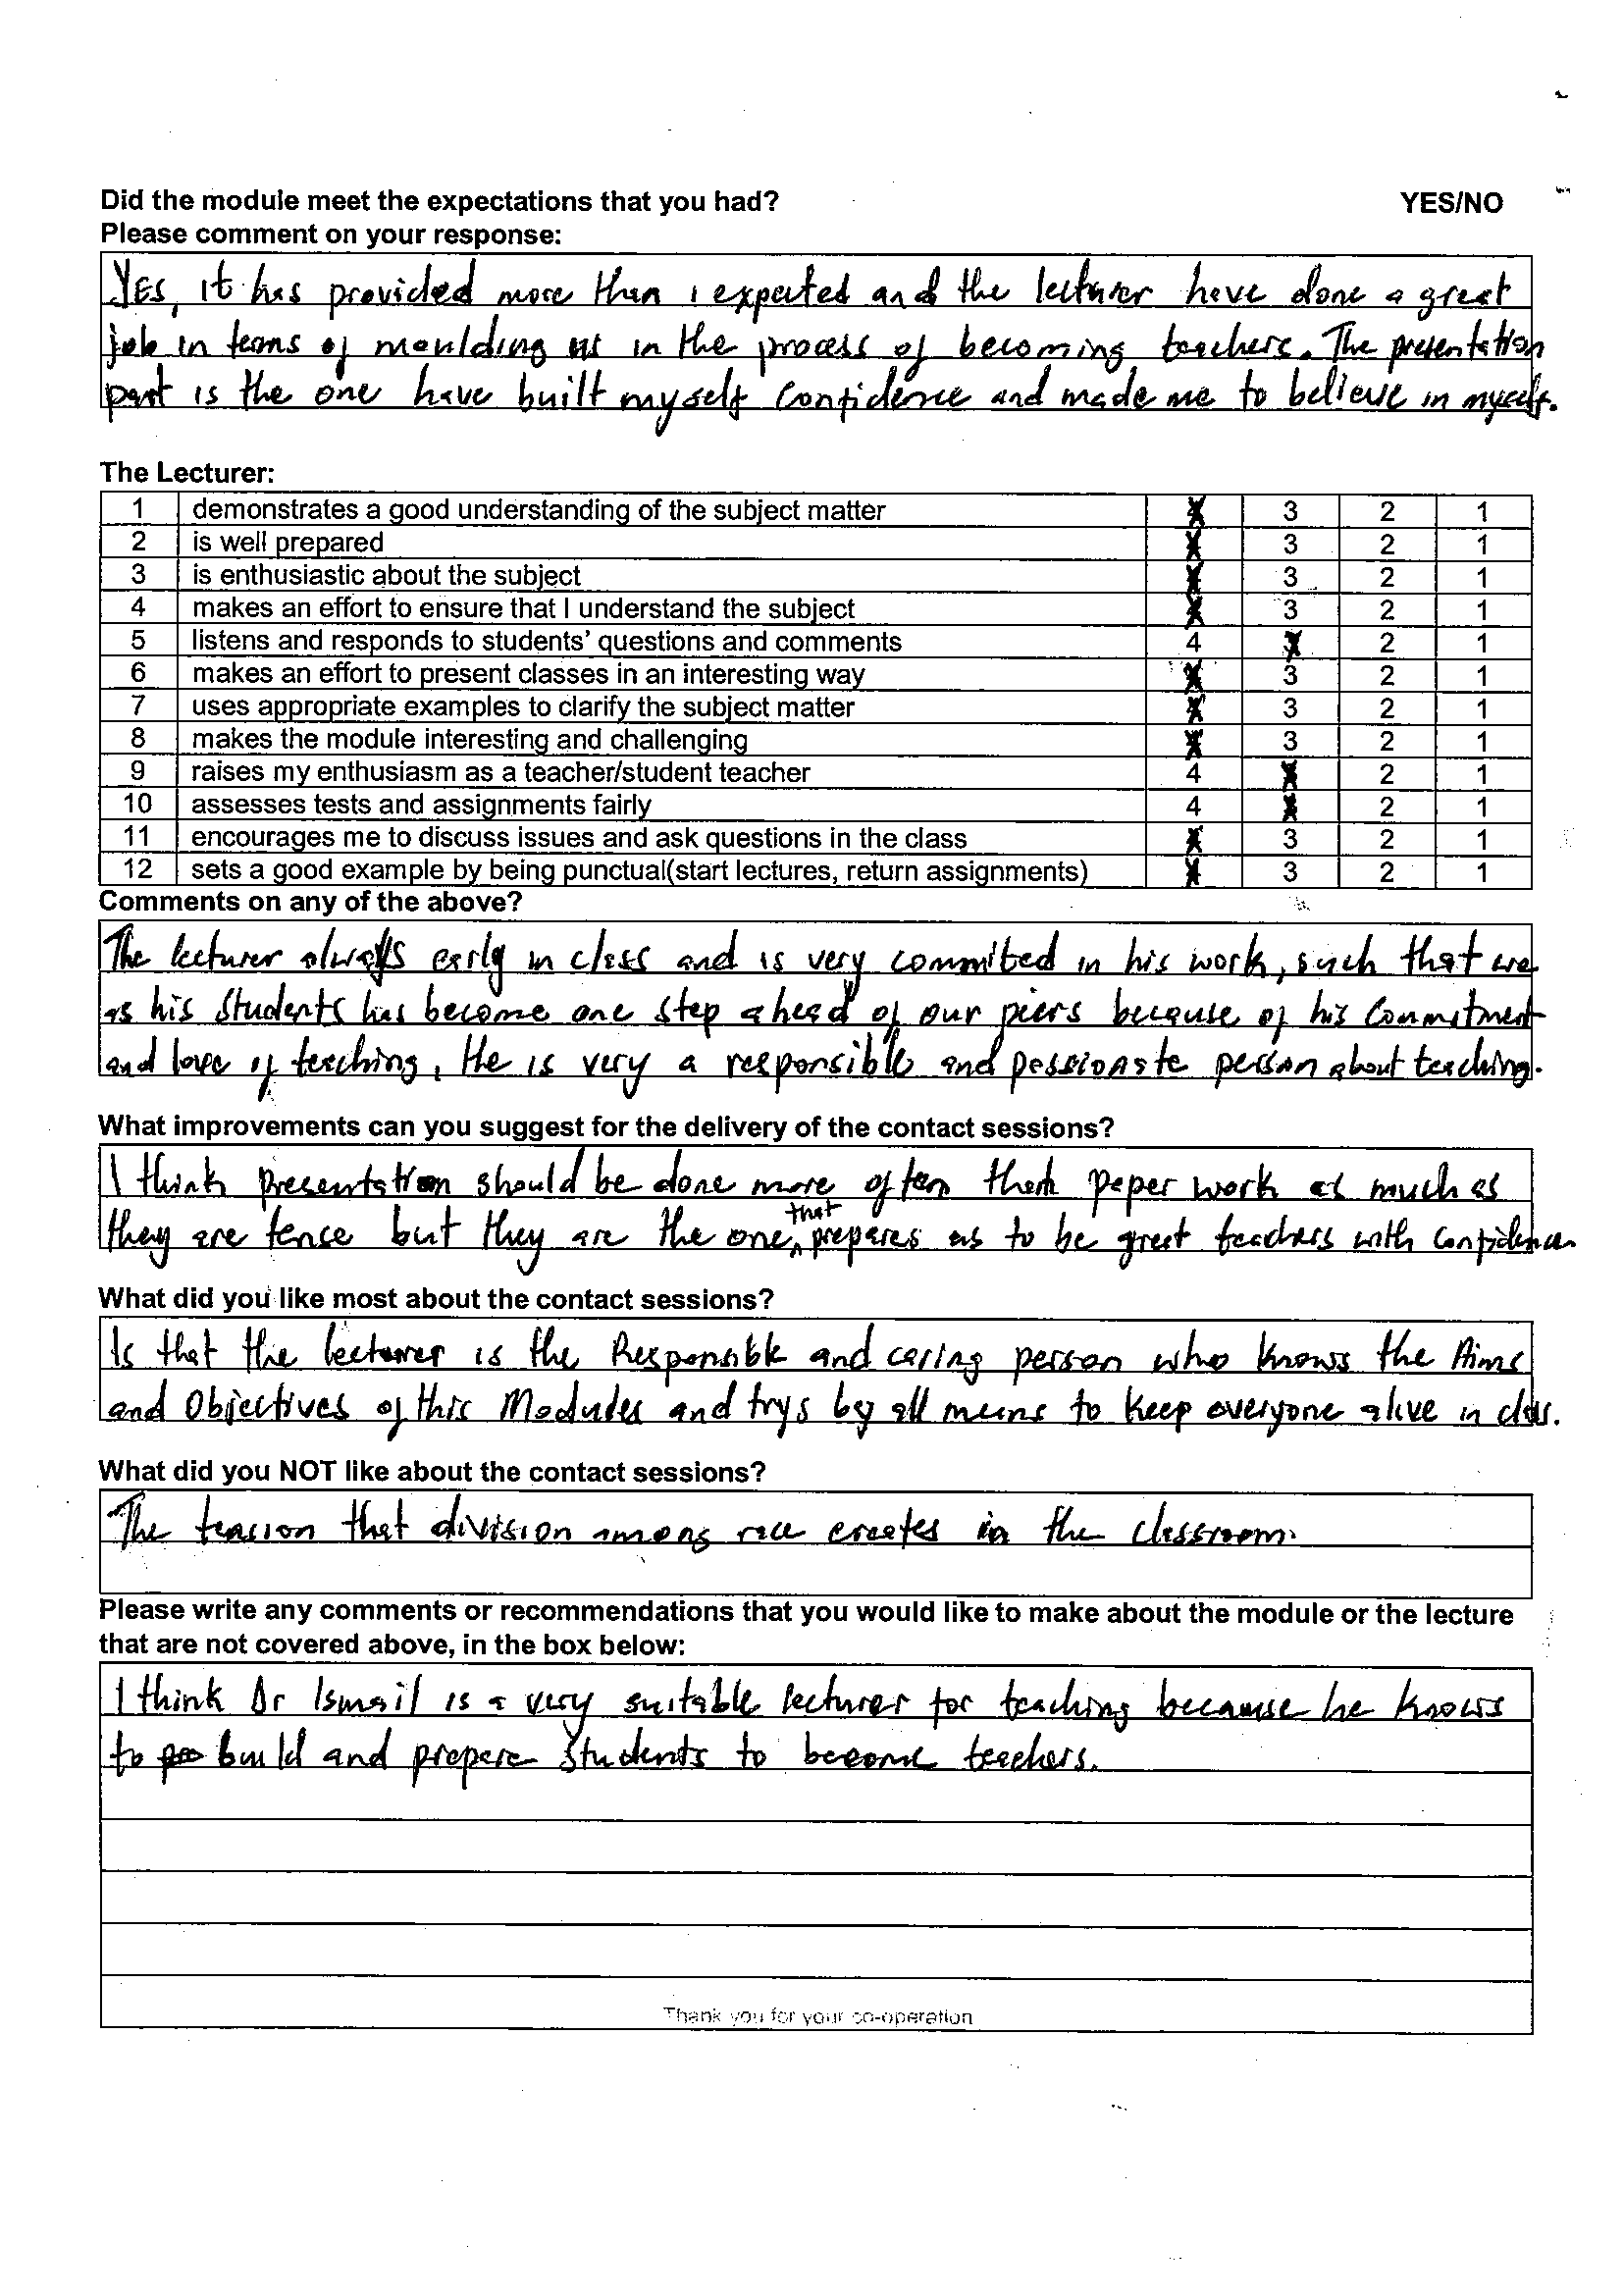 Did the module meet the expectations that you had? YES/NO
Please comment on your response:
YES, it has provided more than i expected and the lecturer have done a great
job in terms of moulding us in the process of becoming teachers. The presentation
part is the one have built myself confidence and made me to believe in myself.
The Lecturer:
1 demonstrates a good understanding of the subject matter 4 3 2 1
2 is well prepared 4 3 2 1
3 is enthusiastic about the subject 4 3 2 1
4 makes an effort to ensure that I understand the subject 4 3 2 1
5 listens and responds to students' questions and comments 4 3 2 1
6 makes an effort to present classes in an interesting way 4 3 2 1
7 uses appropriate examples to clarify the subject matter 4 3 2 1
8 makes the module interesting and challenging 4 3 2 1
9 raises my enthusiasm as a teacher/student teacher 4 3 2 1
10 assesses tests and assignments fairly 4 3 2 1
11 encourages me to discuss issues and ask questions in the class 4 3 2 1
12 sets a good example by being punctual(start lectures, return assignments) 4 3 2 1
Comments on any of the above?
The lecturer always early in class and is very commited in his work, such that we
as his students has become one step ahead of our piers because of his Commitment
and love of teaching, He is very a responsible and passionate person about teaching.
What improvements can you suggest for the delivery of the contact sessions?
I think presentation should be done more often than paper work as much as
they are tense but they are the one that prepares us to be great teachers with confidence
What did you like most about the contact sessions?
Is that the lecturer is the Responsible and caring person who knows the Aims
and Objectives of this Modules and trys by all means to keep everyone alive in class.
What did you NOT like about the contact sessions?
The tension that division among race creates in the classroom.
Please write any comments or recommendations that you would like to make about the module or the lecture
that are not covered above, in the box below:
I think Dr Ismail is a very suitable lecturer for teaching because he knows
to build and prepare students to become teachers.
Thank you for your co-operation